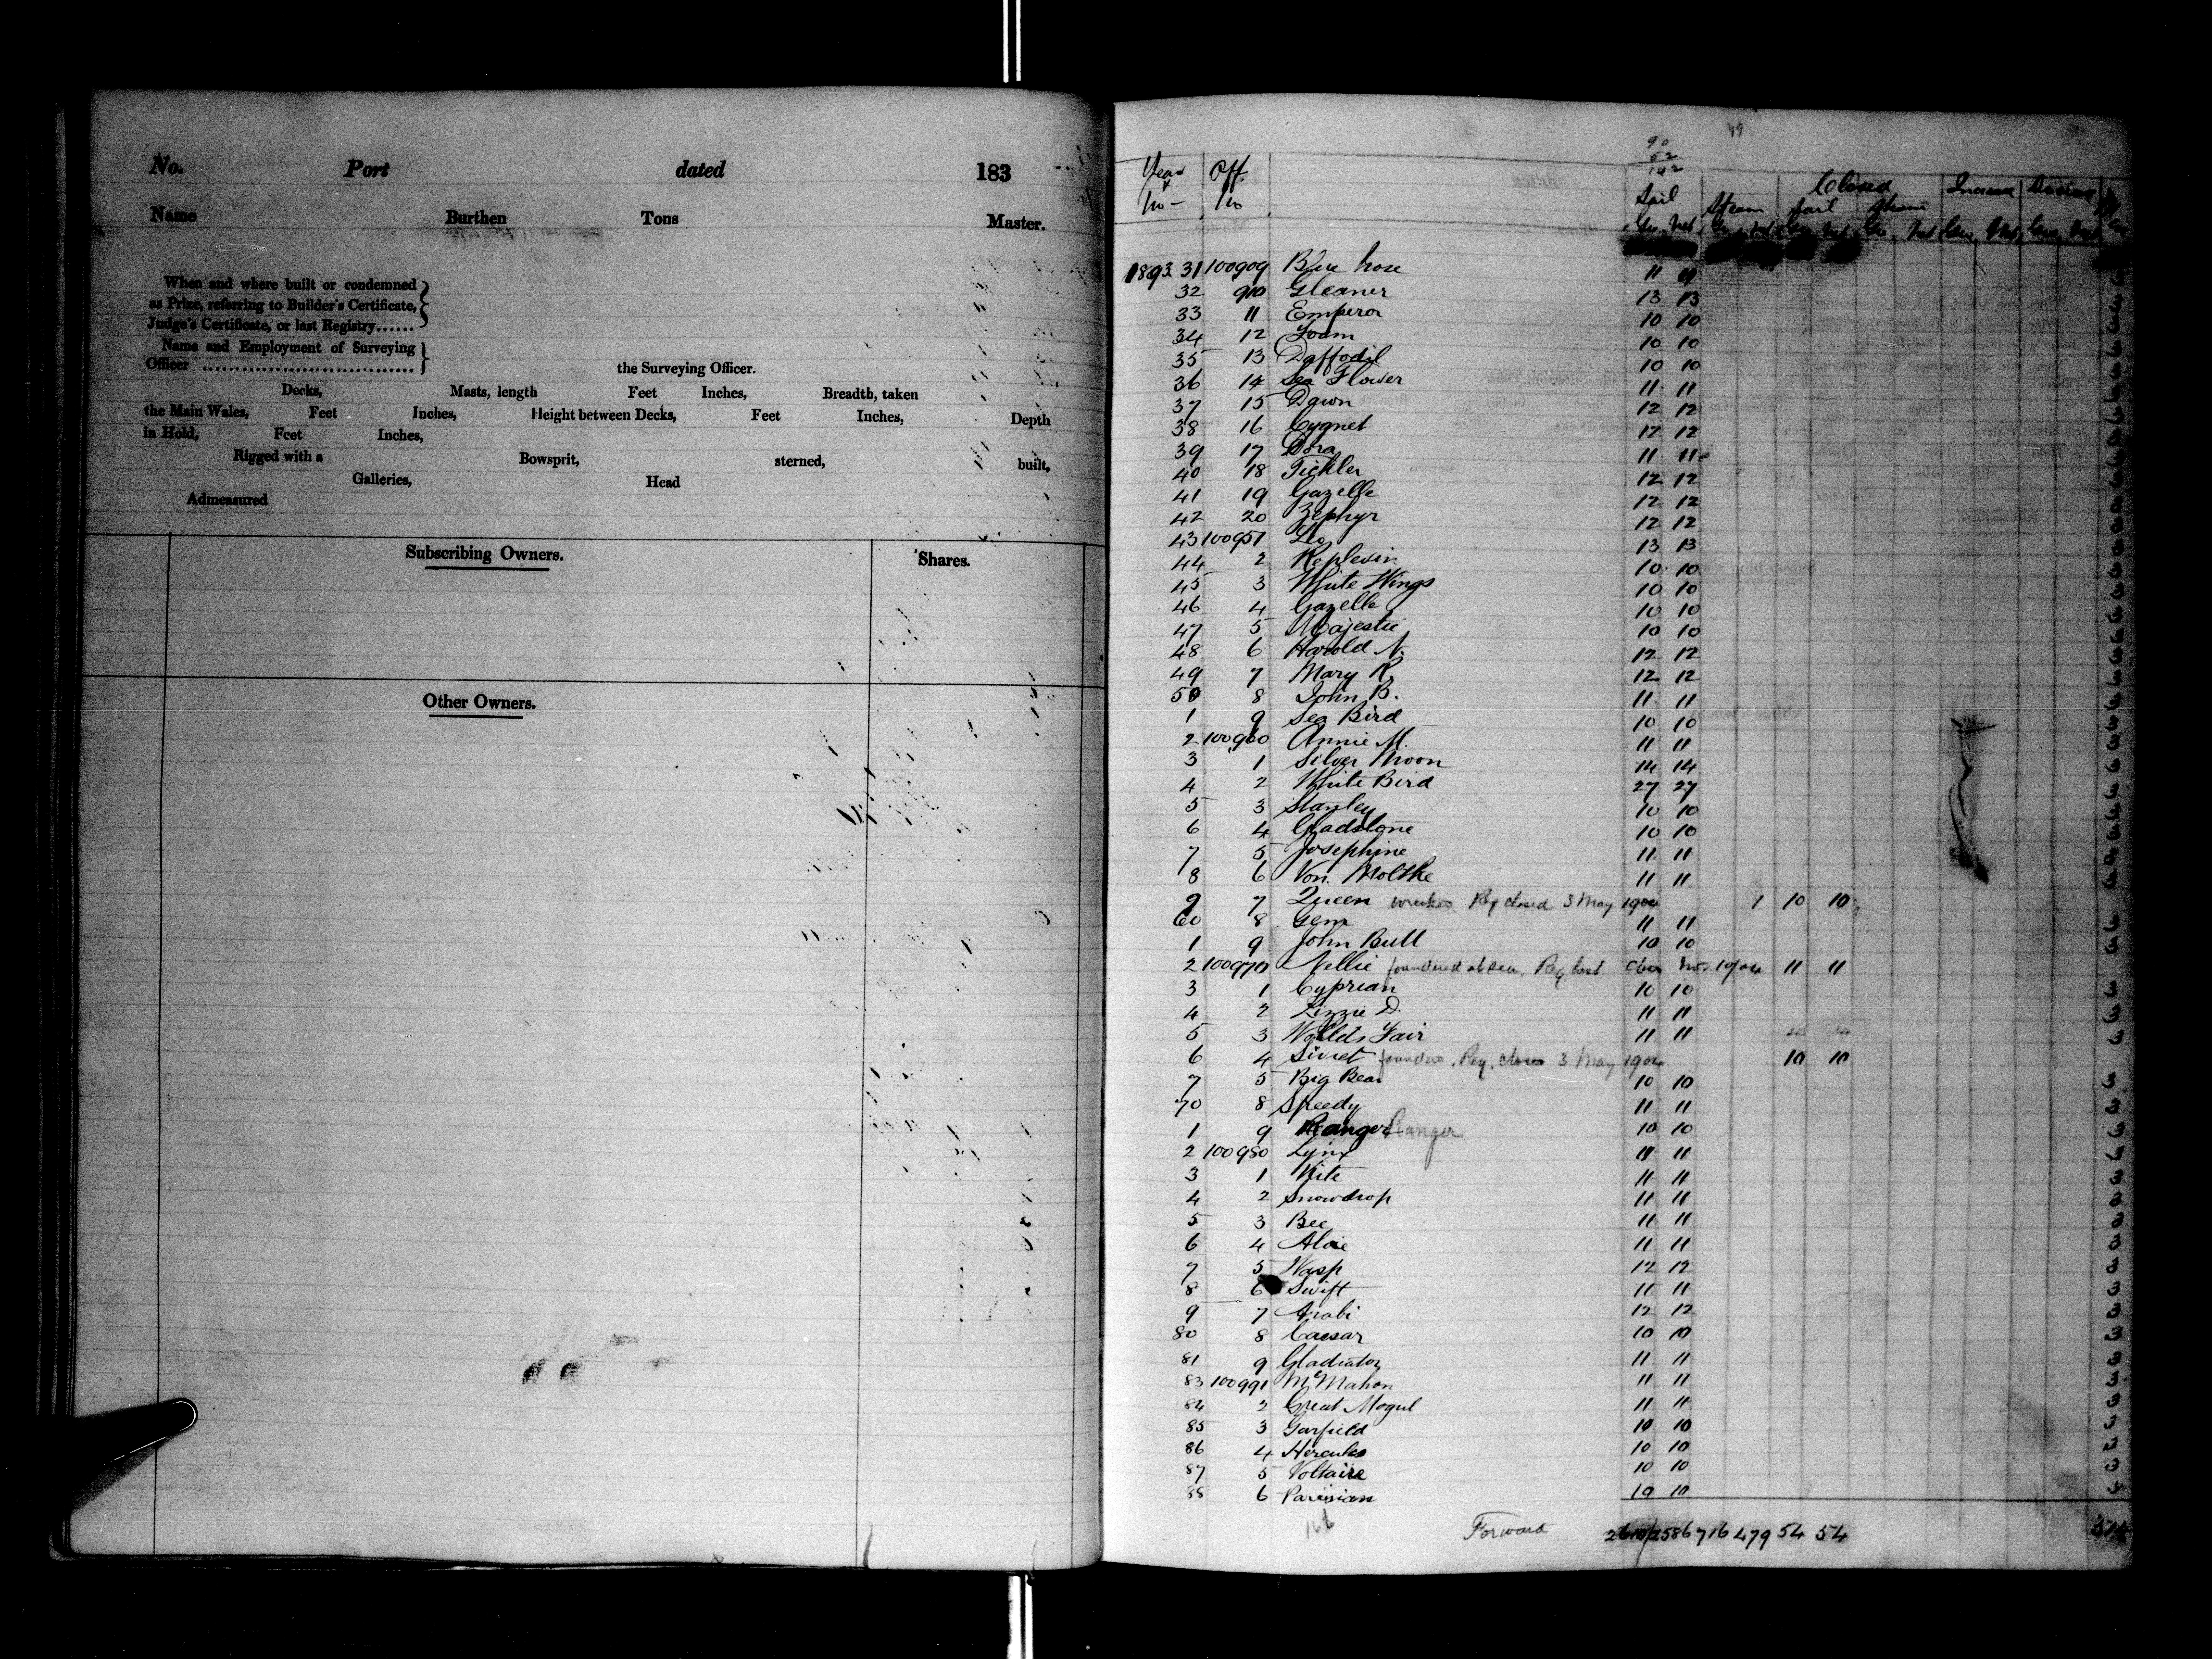 No. Port dated 183
Name Burthen Tons Master.
When and where built or condemned
as Prize, referring to Builder's Certificate,
Judge's Certificate, or last Registry......
Name and Employment of Surveying
Officer ................................ the Surveying Officer.
Decks, Masts, length Feet Inches, Breadth, taken
the Main Wales, Feet Inches, Height between Decks, Feet Inches, Depth
in Hold, Feet Inches,
Rigged with a Bowsprit, sterned, built,
Galleries, Head
Admeasured
Subscribing Owners. Shares.
Other Owners.
Year Off.
No No
Closed
Sail Steam Sail Steam Increase
1893 31 100909 Blue Nose 11 11 3
32 910 Gleaner 13 13 3
33 11 Emperor 10 10 3
34 12 Foam 10 10 3
35 13 Daffodil 10 10 3
36 14 Sea Flower 11 11 3
37 15 Dawn 12 12 3
38 16 Cygnet 12 12 3
39 17 Dora 11 11 3
40 18 Tickler 12 12 3
41 19 Gazelle 12 12 3
42 20 Zephyr 12 12 3
43 100951 Leo 13 13 3
44 2 Replevin 10 10 3
45 3 White Wings 10 10 3
46 4 Gazelle 10 10 3
47 5 Majestic 10 10 3
48 6 Harold N. 12 12 3
49 7 Mary R. 12 12 3
50 8 John B. 11 11 3
1 9 Sea Bird 10 10 3
2 100960 Annie M. 11 11 3
3 1 Silver Moon 14 14 3
4 2 White Bird 27 27 3
5 3 Stanley 10 10 3
6 4 Gladstone 10 10 3
7 5 Josephine 11 11 3
8 6 Von Moltke 11 11 3
9 7 Queen wrecked Reg closed 3 May 1904 1 10 10
60 8 Gem 11 11 3
1 9 John Bull 10 10 3
2 100970 Nellie foundered at sea. Reg lost. 11 11
3 1 Cyprian 10 10 3
4 2 Lizzie D. 11 11 3
5 3 World's Fair 11 11 3
6 4 Sivret Reg. closed 3 May 1904 10 10
7 5 Big Bear 10 10 3
70 8 Speedy 11 11 3
1 9 Ranger Ranger 10 10 3
2 100980 Lynx 11 11 3
3 1 Kite 11 11 3
4 2 Snowdrop 11 11 3
5 3 Bee 11 11 3
6 4 11 11 3
7 5 Wasp 12 12 3
8 6 Swift 11 11 3
9 7 Arabi 12 12 3
80 8 Caesar 10 10 3
81 9 Gladiator 11 11 3
83 100991 McMahon 11 11 3
84 2 Great Mogul 11 11 3
85 3 Garfield 10 10 3
86 4 Hercules 10 10 3
87 5 Voltaire 10 10 3
88 6 Parisian 10 10 3
Forward 2586 716 479 54 54